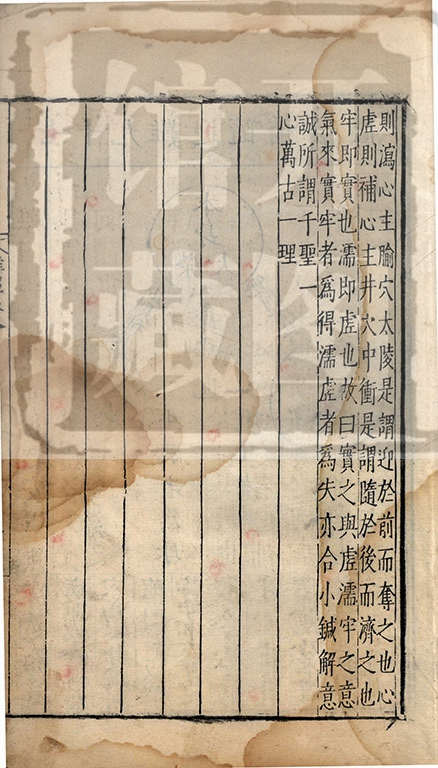 則瀉心主腧穴太陵是謂迎於前而奪之也心
虛則補心主井穴中衝是謂隨於後而濟之也
牢即實也濡即虛也故曰實之與虛濡牢之意
氣來實牢者為得濡虛者為失亦合小鍼解意
誠所謂千聖一
心萬古一理